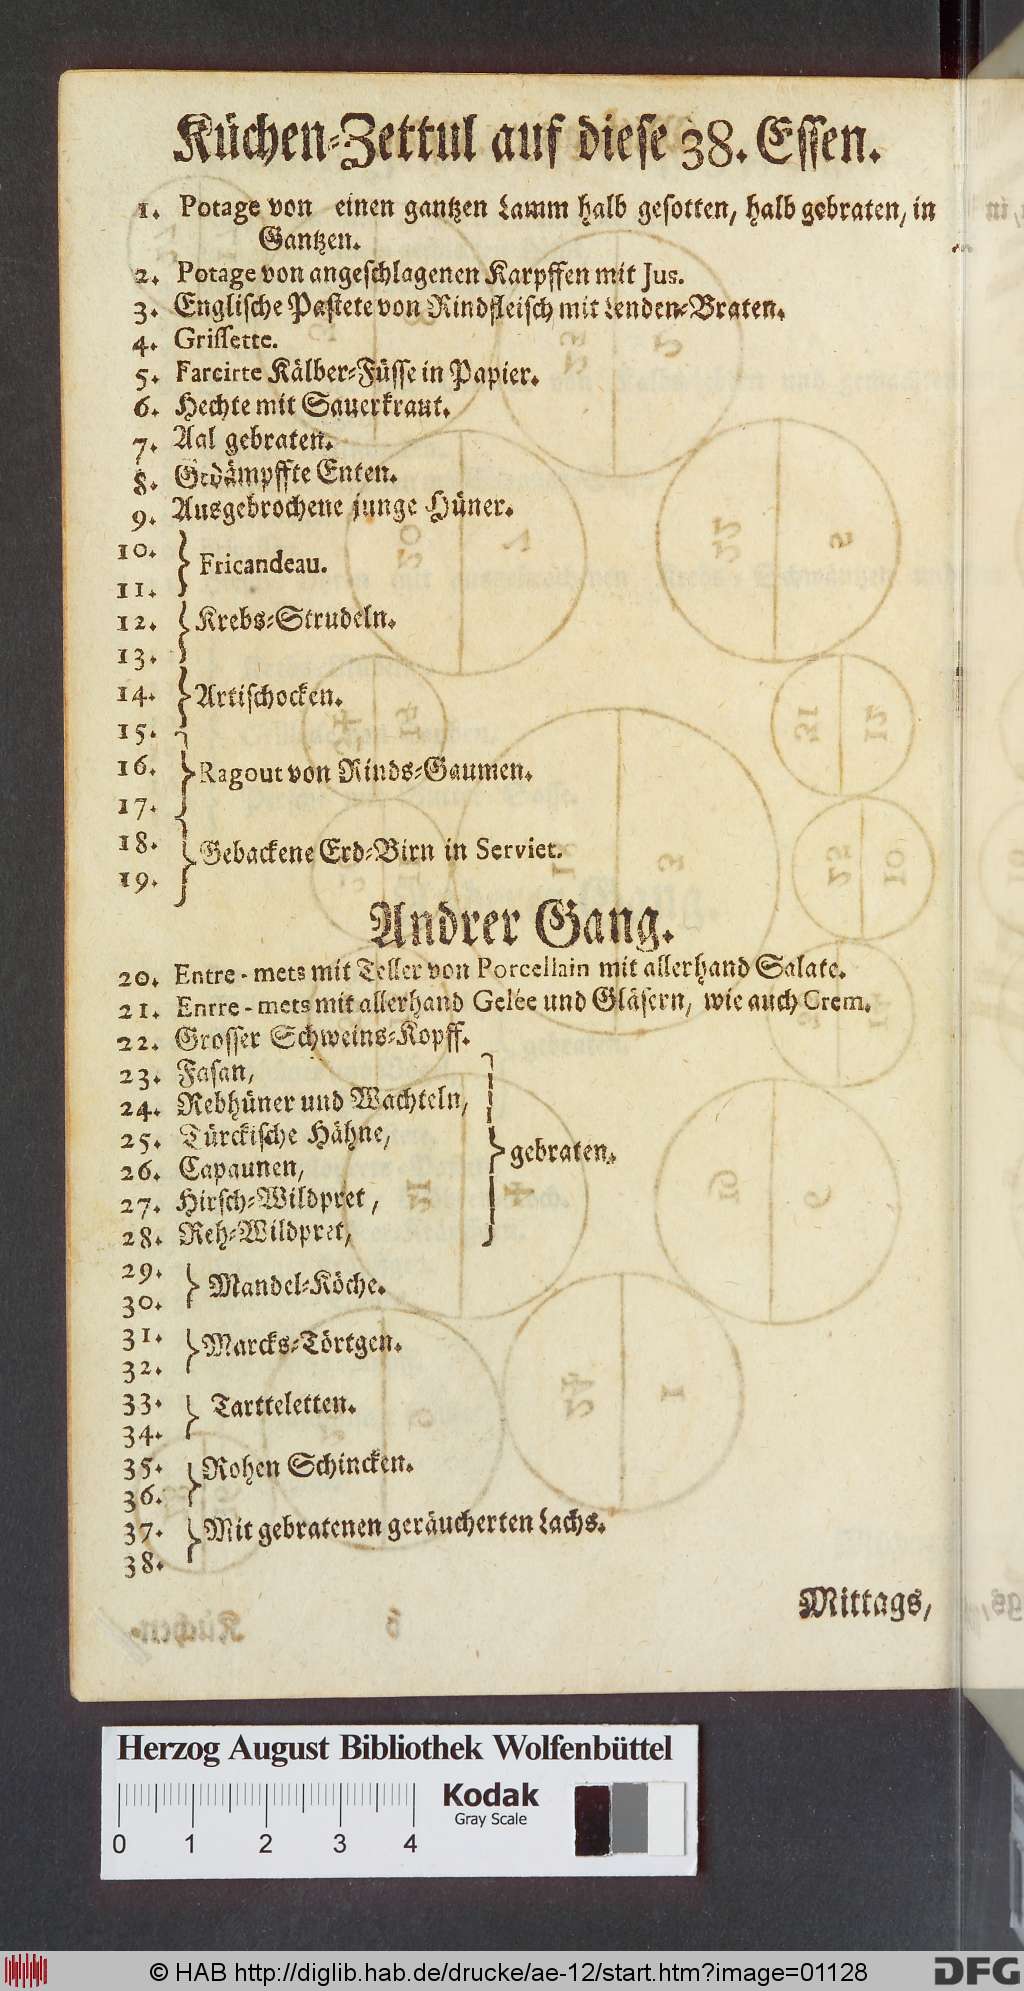 Küchen-Zettul auf diese 38. Essen.
1. Potage von einen gantzen Lamm halb gesotten, halb gebraten, in
Gantzen.
2. Potage von angeschlagenen Karpffen mit Jus.
3. Englische Pastete von Rindfleisch mit Lenden-Braten.
4. Grissette.
5. Farcirte Kälber-Füsse in Papier.
6. Hechte mit Sauerkraut.
7. Aal gebraten.
8. Gedämpffte Enten.
9. Ausgebrochene junge Hüner.
10.
11. Fricandeau.
12. Krebs-Strudeln.
13.
14. Artischocken.
15.
16. Ragout von Rinds-Gaumen.
17.
18. Gebackene Erd-Birn in Serviet.
19.
Andrer Gang.
20. Entre-mets mit Teller von Porcellain mit allerhand Salate.
21. Entre-mets mit allerhand Gelée und Gläsern, wie auch Crem.
22. Grosser Schweins-Kopff.
23. Fasan,
24. Rebhüner und Wachteln,
25. Türckische Hähne,
gebraten.
26. Capaunen,
27. Hirsch-Wildpret,
28. Reh-Wildpret,
29.
30. Mandel-Köche.
31. Marcks-Törtgen.
32.
33. Tartteletten.
34.
35. Rohen Schincken.
36.
37. Mit gebratenen geräucherten Lachs.
38.
Mittags,
Herzog August Bibliothek Wolfenbüttel
Kodak
Gray Scale
0 1 2 3 4
© HAB http://diglib.hab.de/drucke/ae-12/start.htm?image=01128
DFG